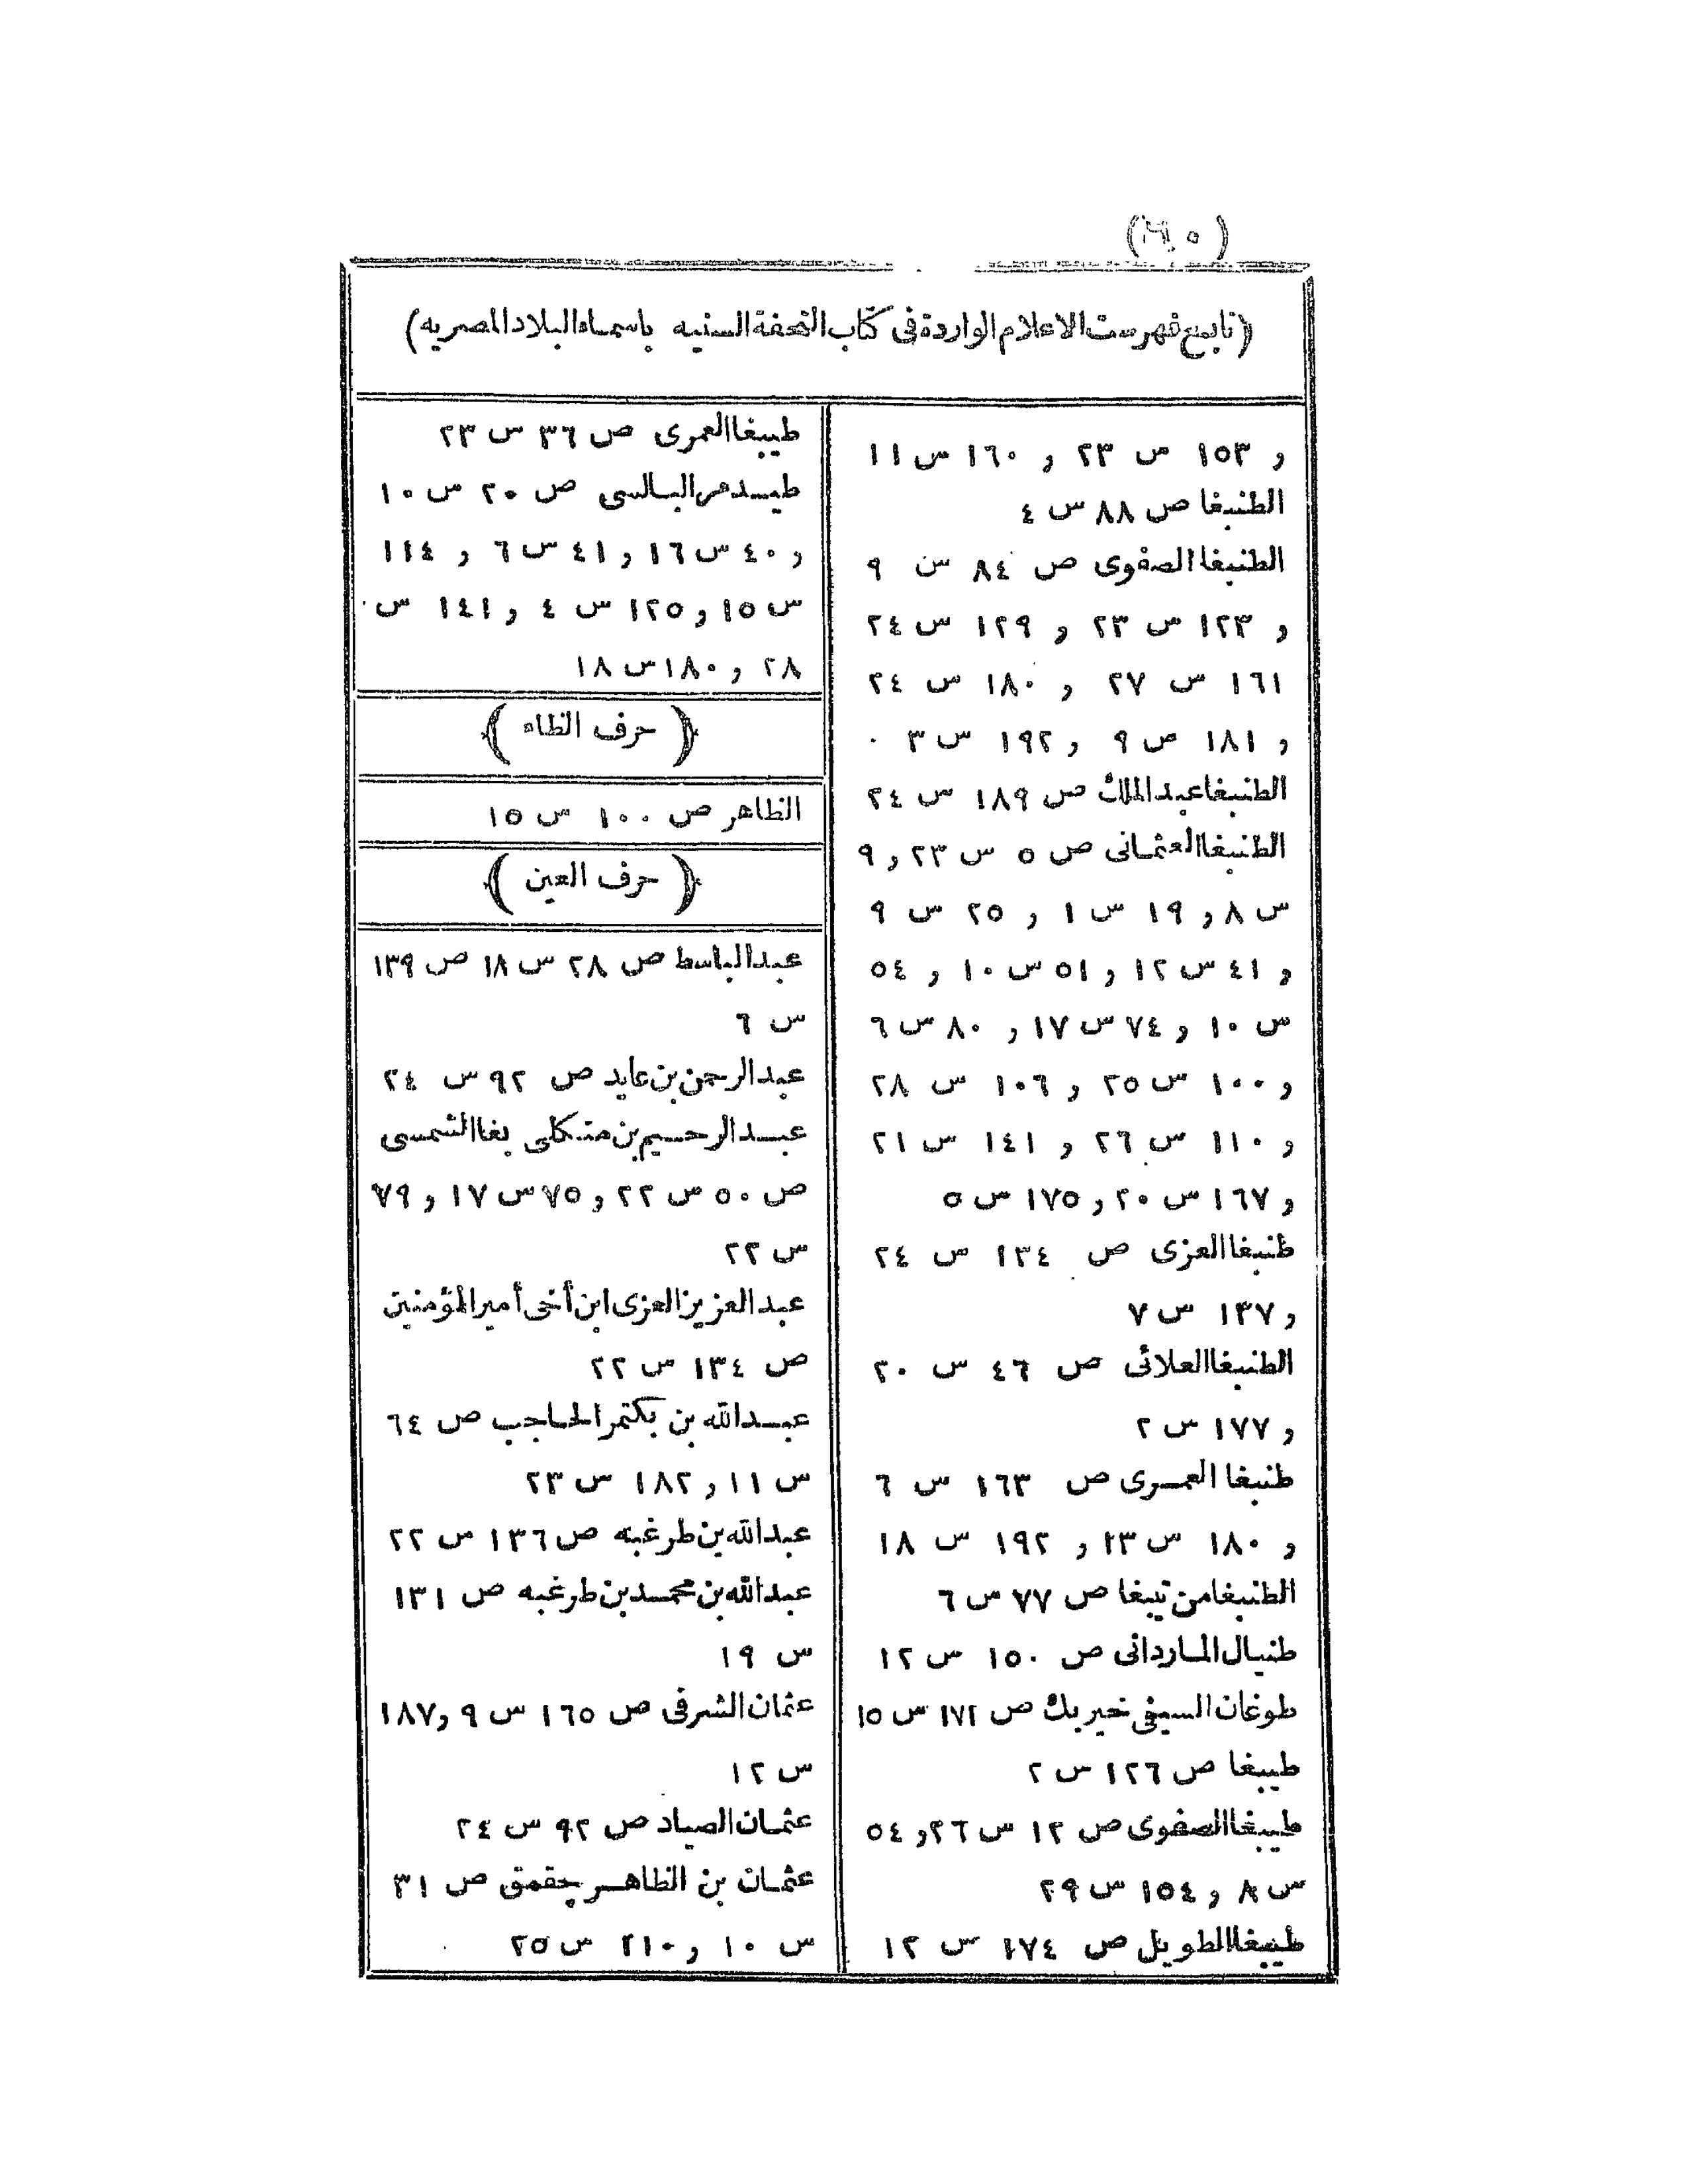 (تابع فهرست الاعلام الواردة فى كتاب التحفة السنيه باسماء البلاد المصريه)
و ١٥٣ س ٢٣ و ١٦٠ س ١١
الطنبغا ص ٨٨ س ٤
الطنبغا الصفوى ص ٨٤ س ٩
و ١٢٣ س ٢٣ و ١٢٩ س ٢٤
١٦١ س ٢٧ و ١٨٠ س ٢٤
و ١٨١ ص ٩ و ١٩٢ س ٣
الطنبغا عبد الملك ص ١٨٩ س ٢٤
الطنبغا العثمانى ص ٥ س ٢٣ و ٩
س ٨ و ١٩ س ١ و ٢٥ س ٩
و ٤١ س ١٢ و ٥١ س ١٠ و ٥٤
س ١٠ و ٧٤ س ١٧ و ٨٠ س ٦
و ١٠٠ س ٢٥ و ١٠٦ س ٢٨
و ١١٠ س ٢٦ و ١٤١ س ٢١
و ١٦٧ س ٢٠ و ١٧٥ س ٥
طنبغا العزى ص ١٣٤ س ٢٤
و ١٣٧ س ٧
الطنبغا العلائى ص ٤٦ س ٢٠
و ١٧٧ س ٢
طنبغا العمرى ص ١٦٣ س ٦
و ١٨٠ س ٢٣ و ١٩٢ س ١٨
الطنبغا من تيبغا ص ٧٧ س ٦
طنيال الماردانى ص ١٥٠ س ١٢
طوغان السيفى خير بك ص ١٧٢ س ١٥
طيبغا ص ١٢٦ س ٢
طيبغا الصفوى ص ١٢ س ٢٦ و ٥٤
س ٨ و ١٥٤ س ٢٩
طيبغا الطويل ص ١٧٤ س ١٢
طيبغا العمرى ص ٣٦ س ٢٣
طيدمر البالسى ص ٢٠ س ١٠
و ٤٠ س ١٦ و ٤١ س ٦ و ١١٤
س ١٥ و ١٢٥ س ٤ و ١٤١ س
٢٨ و ١٨٠ س ١٨
(حرف الظاء)
الظاهر ص ١٠٠ س ١٥
(حرف العين)
عبد الباسط ص ٢٨ س ١٨ ص ١٣٩
س ٦
عبد الرحمن بن عايد ص ٩٢ س ٢٤
عبد الرحيم بن منكلى بغا الشمسى
ص ٥٠ س ٢٢ و ٧٥ س ١٧ و ٧٩
س ٢٢
عبد العزيز العزى ابن أخى أمير المؤمنين
ص ١٣٤ س ٢٢
عبد الله بن بكتمر الحاجب ص ٦٤
س ١١ و ١٨٢ س ٢٣
عبد الله بن طرغبه ص ١٣٦ س ٢٢
عبد الله بن محمد بن طرغبه ص ١٣١
س ١٩
عثمان الشرفى ص ١٦٥ س ٩ و ١٨٧
س ١٢
عثمان الصياد ص ٩٢ س ٢٤
عثمان بن الظاهر جقمق ص ٣١
س ١٠ و ٢١٠ س ٢٥